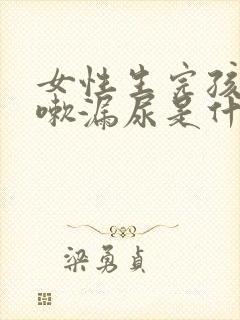 女性生完孩
嗽漏尿是什
梁勇貞